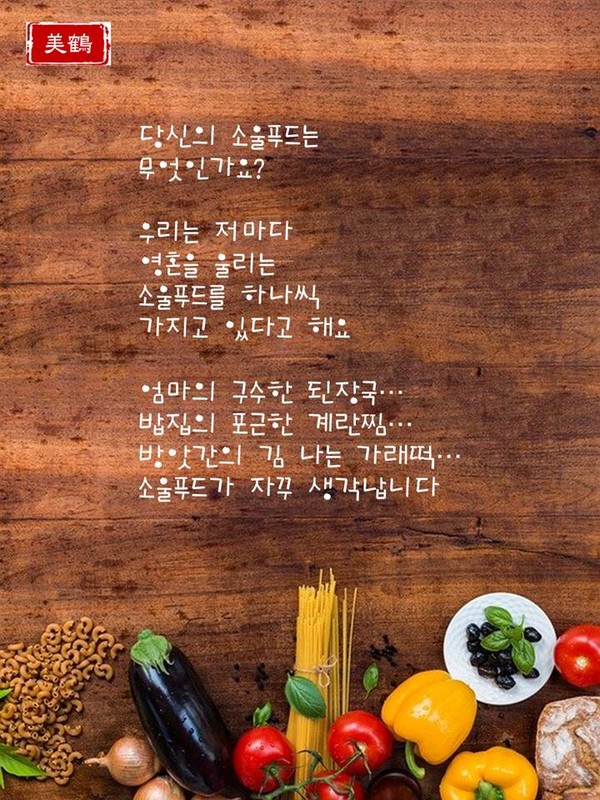 美鶴
당신의 소울푸드는
무엇인가요?
우리는 저마다
영혼을 울리는
소울푸드를 하나씩
가지고 있다고 해요
엄마의 구수한 된장국...
밥집의 포근한 계란찜...
방앗간의 김 나는 가래떡...
소울푸드가 자꾸 생각납니다